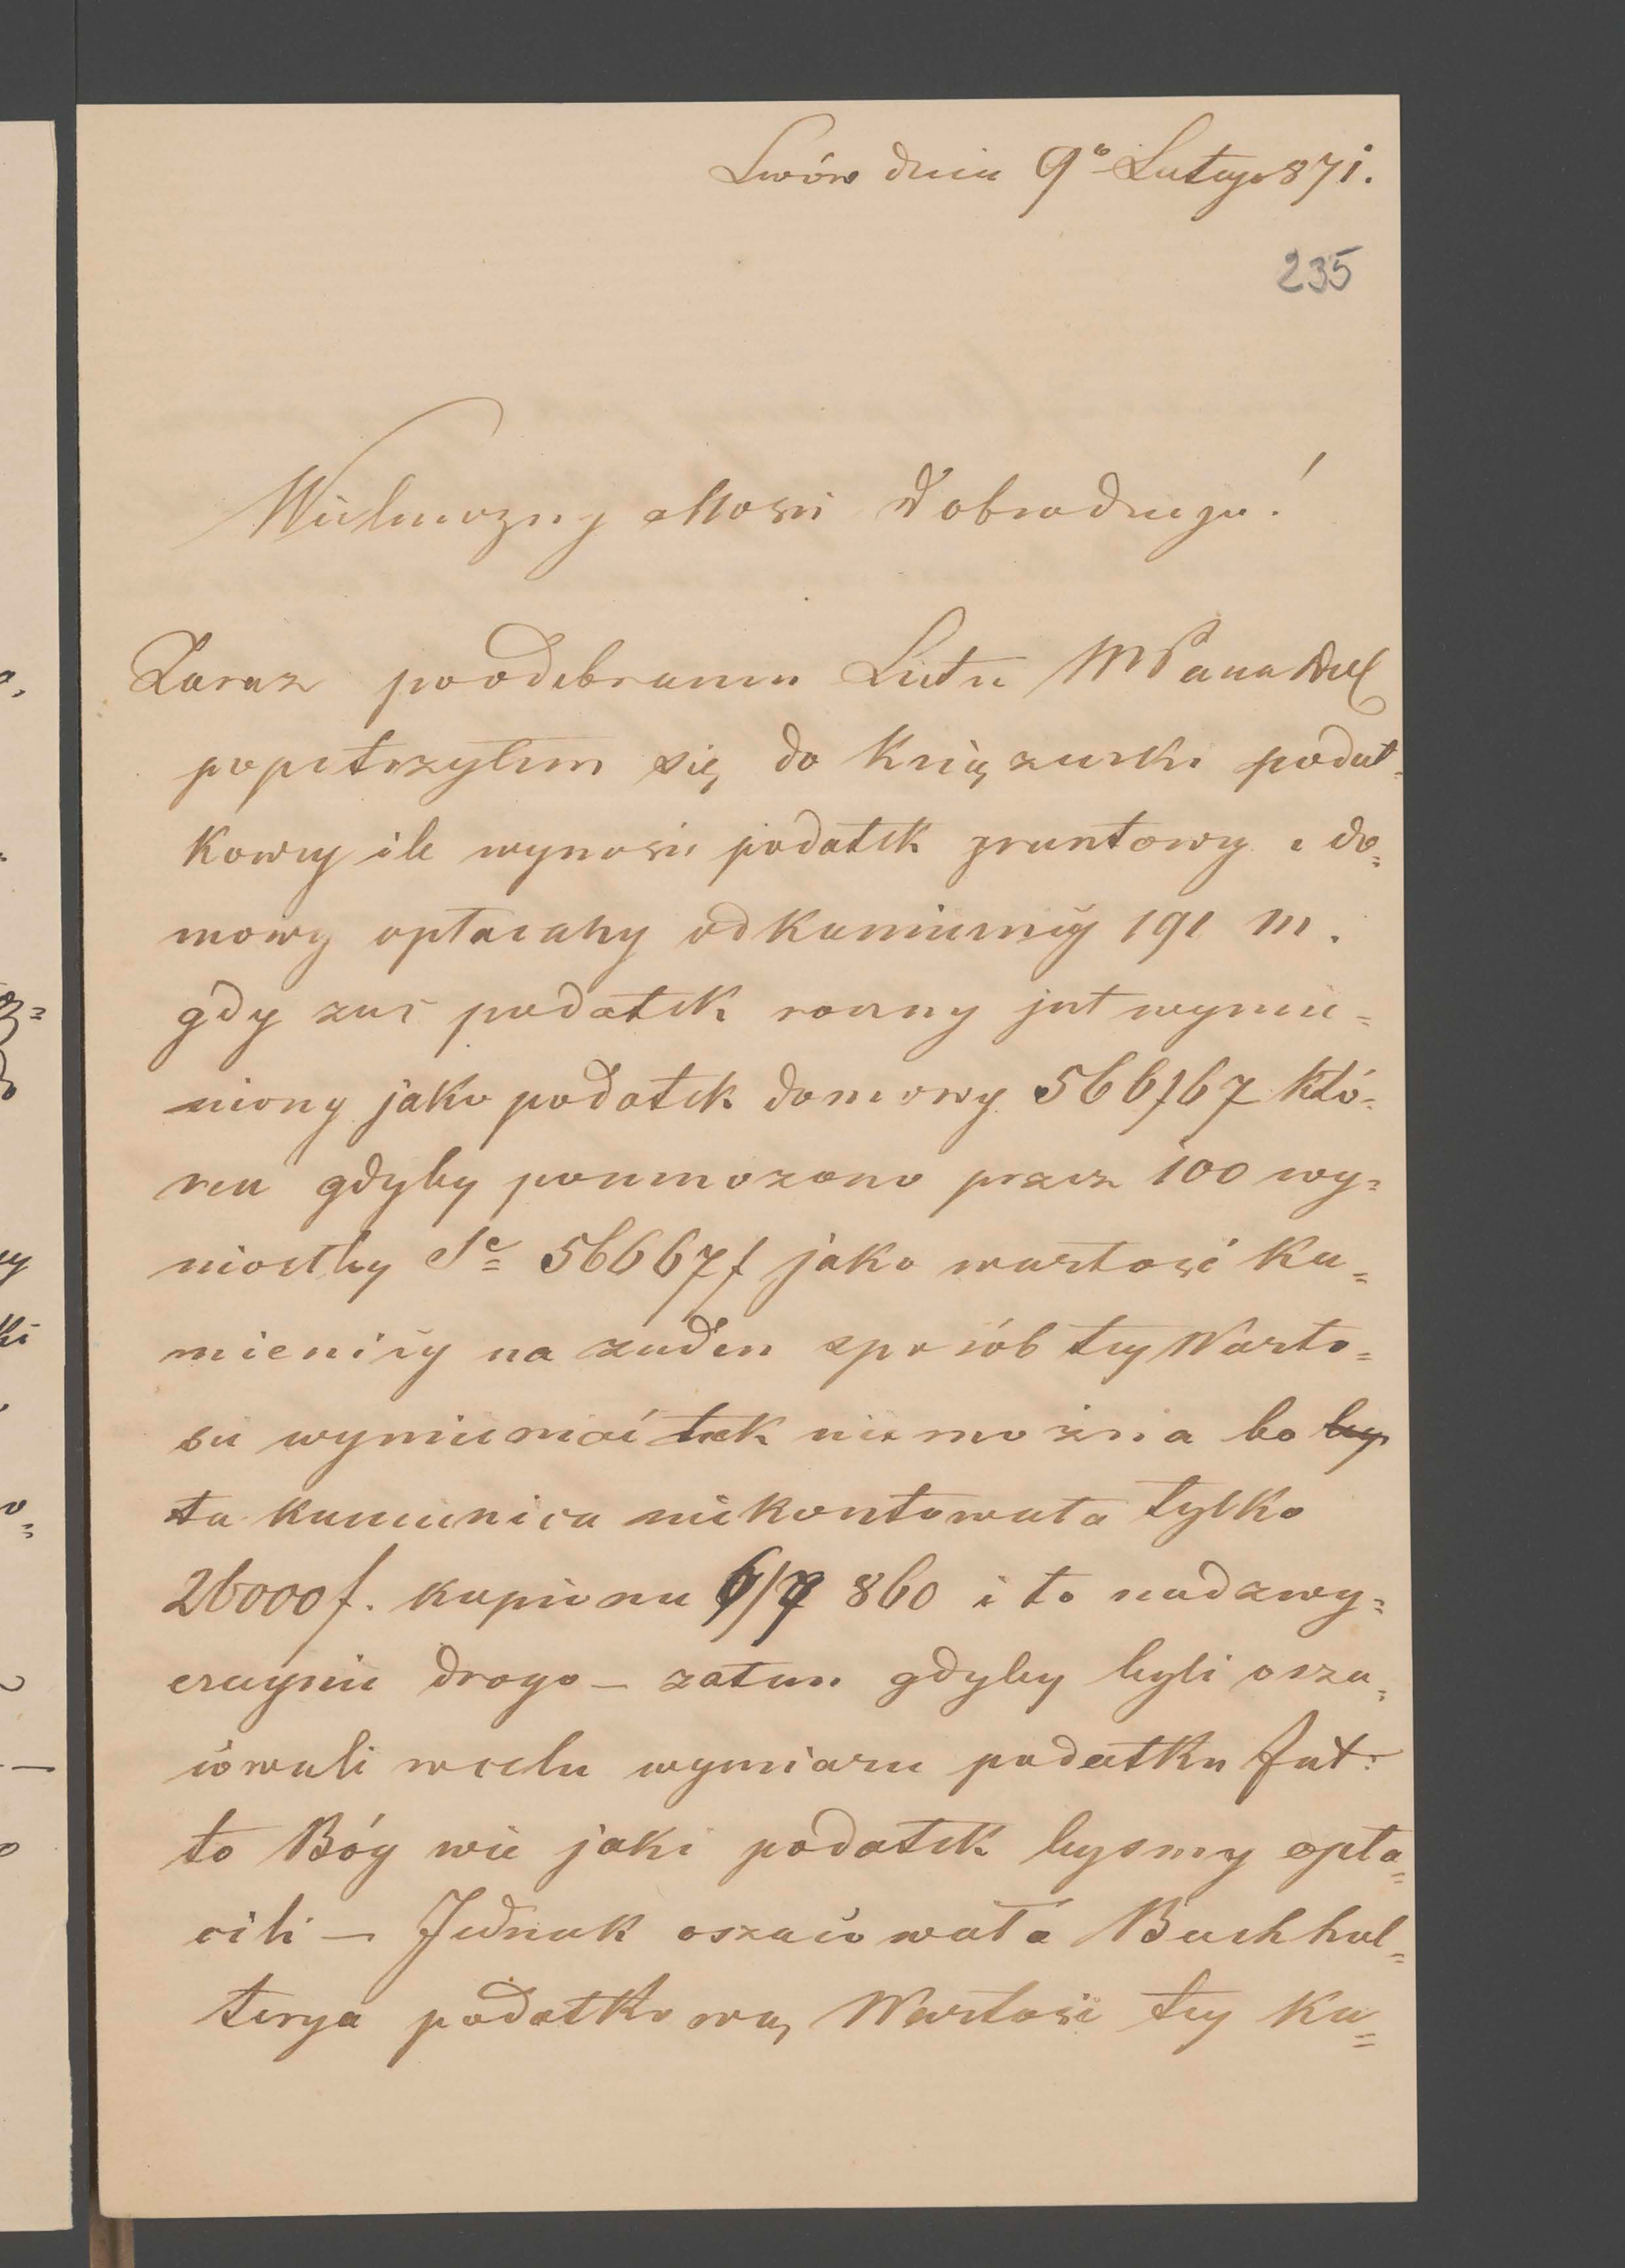 Lwów dnia 9º Lutego 871.
235
Wielmożny Mości Dobrodzieju!
Zaraz poodebraniu Listu WPana
popatrzyłem się do Książeczki podat-
kowej ile wynosi podatek gruntowy i do=
mowy opłacany od kamienicy 191 m.
gdy zaś podatek roczny jest wymie=
niony jako podatek domowy 566f67 któ=
ren gdyby pomnożono przez 100 wy=
niosłby Sº 56667f jako wartość ka=
mienicy na żaden sposób tej Warto=
ści wymieniać tak niemożna bo by
ta kamienica niekosztowała tylko
26000f. kupiona 6/7 860 i to nadzwy=
czajnie drogo – zatem gdyby byli osza=
cowali wcelu wymiaru podatku
to Bóg wie jaki podatek byśmy opła=
cili – Jednak oszacowała Buchhal=
terya podatkowa, Wartość tej Ka=